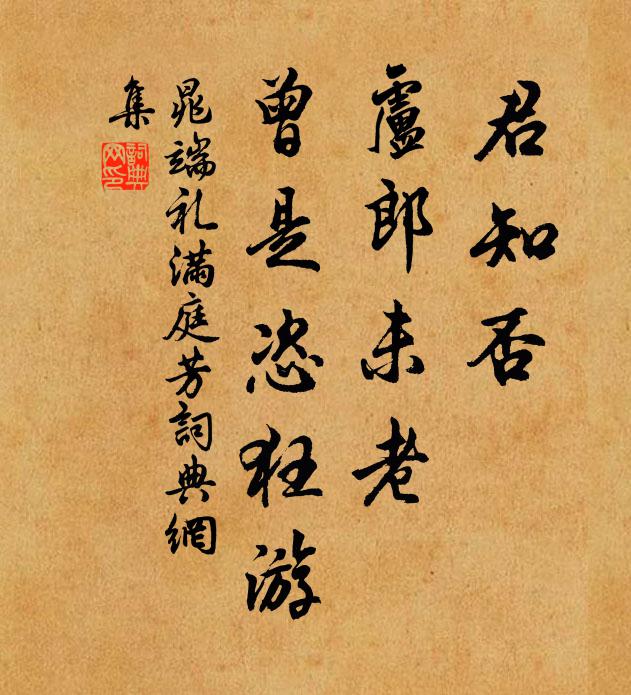 君知否
盧郎未老
曾是恣狂游
晁端礼满庭芳詞典網
集
詞典